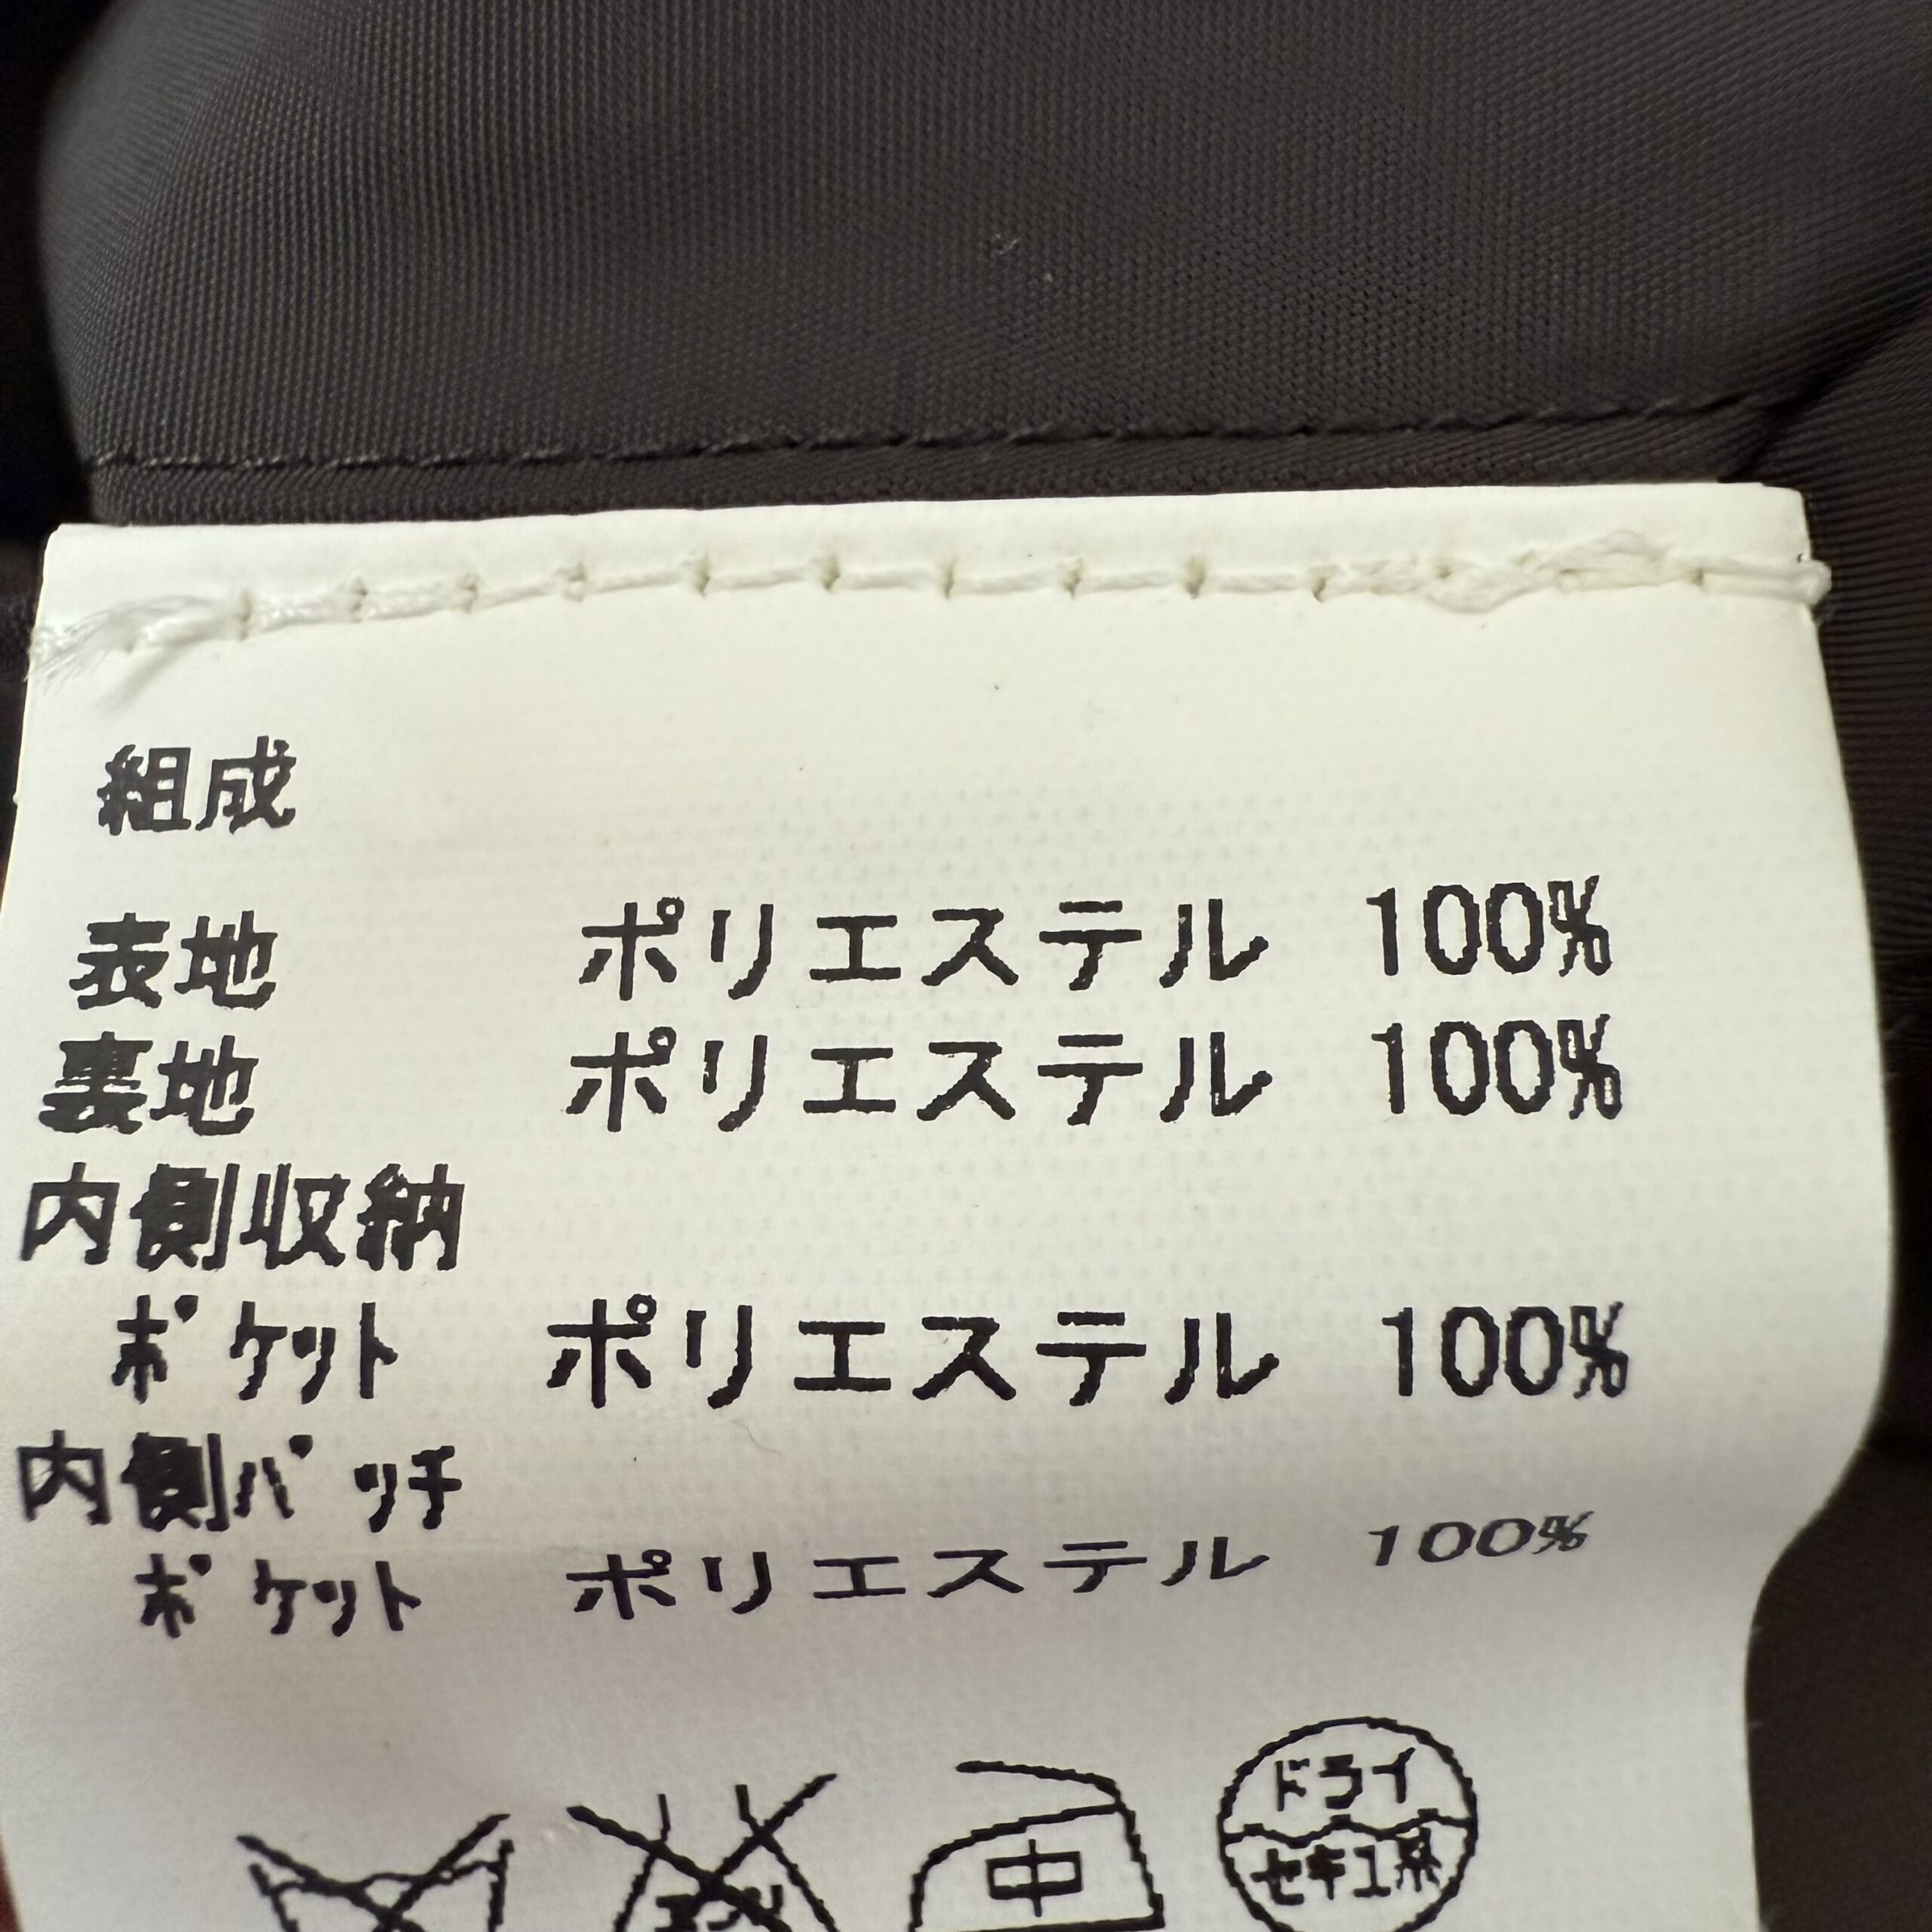 組成
表地 ポリエステル 100%
裏地 ポリエステル 100%
内側収納
ﾎﾟｹｯﾄ ポリエステル 100%
内側ﾊﾟｯﾁ
ﾎﾟｹｯﾄ ポリエステル 100%
中
ドライ
セキユ系